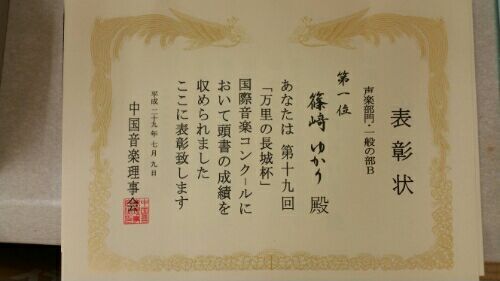 表彰状
声楽部門・一般の部B
第一位
篠﨑 ゆかり 殿
あなたは 第十九回
「万里の長城杯」
国際音楽コンクールに
おいて頭書の成績を
収められました
ここに表彰致します
平成二十九年七月九日
中国音楽理事会